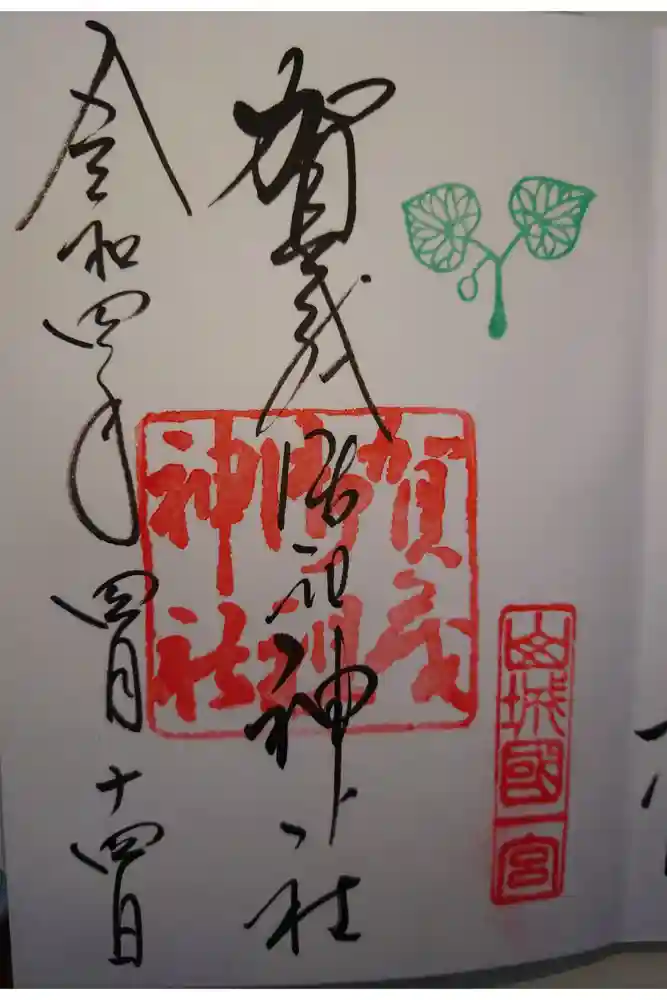 山城國一宮
賀茂御祖神社
賀茂御祖神社
令和四年四月十四日